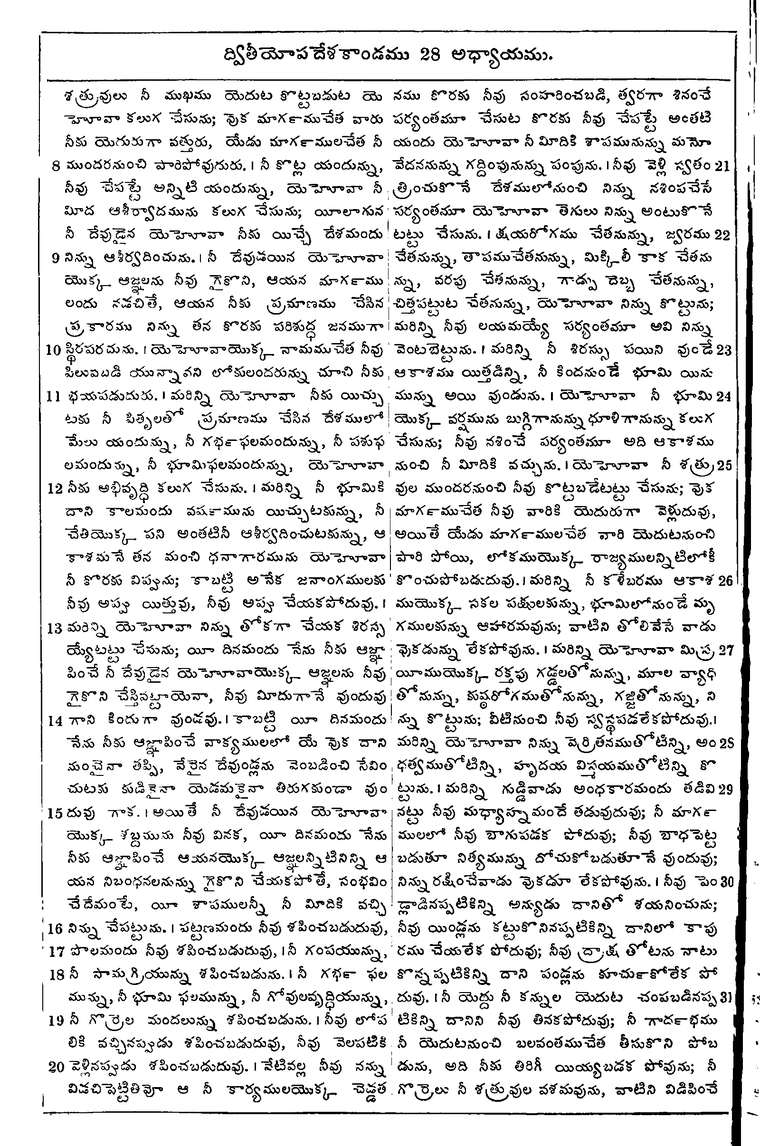 ద్వితీయోపదేశకాండము 28 అధ్యాయము.
శత్రువులు నీ ముఖము యెదుట కొట్టబడుట యె
హెూవా కలుగ చేసును; వొక మార్గముచేత వారు
నీకు యెగురుగా వత్తురు, యేడు మార్గములచేత నీ
8 ముందరనుంచి పారిపోవుగురు. । నీ కొట్ల యందున్ను,
నీవు చేపట్టే అన్నిటి యందున్ను, యెహెూవా నీ
మీద ఆశీర్వాదమును కలుగ చేసును; యీలాగున
నీ దేవుడైన యెహెూవా నీకు యిచ్చే దేశమందు
9 నిన్ను ఆశీర్వదించును. । నీ దేవుడయిన యెహెూవా
యొక్క ఆజ్ఞలను నీవు గైకొని, ఆయన మార్గము
లందు నడచితే, ఆయన నీకు ప్రమాణము చేసిన
ప్రకారము నిన్ను తన కొరకు పరిశుద్ధ జనముగా
10 స్థిరపరచును. । యెహెూవాయొక్క నామముచేత నీవు
పిలువబడి యున్నావని లోకులందరున్ను చూచి నీకు
11 భయపడుదురు. । మరిన్ని యెహెూవా నీకు యిచ్చు
టకు నీ పితృలతో ప్రమాణము చేసిన దేశములో
మేలు యందున్ను, నీ గర్భఫలమందున్ను, నీ పశుఫ
లమందున్ను, నీ భూమిఫలమందున్ను, యెహెూవా
12 నీకు అభివృద్ధి కలుగ చేసును. । మరిన్ని నీ భూమికి
దాని కాలమందు వర్షమును యిచ్చుటకున్ను, నీ
చేతియొక్క పని అంతటినీ ఆశీర్వదించుటకున్ను, ఆ
కాశమనే తన మంచి ధనాగారమును యెహెూవా
నీ కొరకు విప్పును; కాబట్టి అనేక జనాంగములకు
నీవు అప్పు యిత్తువు, నీవు అప్పు చేయకపోదువు. ।
13 మరిన్ని యెహెూవా నిన్ను తోకగా చేయక శిరస్స
య్యేటట్టు చేసును; యీ దినమందు నేను నీకు ఆజ్ఞా
పించే నీ దేవుడైన యెహెూవాయొక్క ఆజ్ఞలను నీవు
గైకొని చేస్తినట్టాయెనా, నీవు మీదుగానే వుందువు
14 గాని కిందుగా వుండవు. । కాబట్టి యీ దినమందు
నేను నీకు ఆజ్ఞాపించే వాక్యములలో యే వొక దాని
నుంచైనా తప్పి, వేరైన దేవుండ్లను వెంబడించి సేవిం
చుటకు కుడికైనా యెడమకైనా తిరుగకుండా వుం
15 దువు గాక. । అయితే నీ దేవుడయిన యెహెూవా
యొక్క శబ్దమును నీవు వినక, యీ దినమందు నేను
నీకు ఆజ్ఞాపించే ఆయనయొక్క ఆజ్ఞలన్నిటినిన్ని ఆ
యన నిబంధనలనున్ను గైకొని చేయకపోతే, సంభవిం
చేదేమంటే, యీ శాపములన్నీ నీ మీదికి వచ్చి
16 నిన్ను చేపట్టును. । పట్టణమందు నీవు శపించబడుదువు,
17 పొలమందు నీవు శపించబడుదువు, । నీ గంపయున్ను,
18 నీ సామగ్రియున్ను శపించబడును. । నీ గర్భ ఫల
మున్ను, నీ భూమి ఫలమున్ను, నీ గోవులవృద్ధియున్ను,
19 నీ గొర్రెల మందలున్ను శపించబడును. । నీవు లోప
లికి వచ్చినప్పుడు శపించబడుదువు, నీవు వెలపటికి
20 వెళ్లినప్పుడు శపించబడుదువు. । వేటివల్ల నీవు నన్ను
విడచిపెట్టితివో ఆ నీ కార్యములయొక్క చెడ్డత
నము కొరకు నీవు సంహరించబడి, త్వరగా శినంచే
పర్యంతమూ చేసుట కొరకు నీవు చేపట్టే అంతటి
యందు యెహెూవా నీ మీదికి శాపమునున్ను మనో
వేదననున్ను గద్దింపునున్ను పంపును. । నీవు వెళ్లి స్వతం 21
త్రించుకొనే దేశములోనుంచి నిన్ను నశింపచేసే
పర్యంతమూ యెహెూవా తెగులు నిన్ను అంటుకొనే
టట్టు చేసును. । క్షయరోగము చేతనున్ను, జ్వరము 22
చేతనున్ను, తాపముచేతనున్ను, మిక్కిలీ కాక చేతను
న్ను, వరపు చేతనున్ను, గాడ్పు దెబ్బ చేతనున్ను,
చిత్తపట్టుట చేతనున్ను, యెహెూవా నిన్ను కొట్టును;
మరిన్ని నీవు లయమయ్యే పర్యంతమూ అవి నిన్ను
వెంటబెట్టును. । మరిన్ని నీ శిరస్సు పయిని వుండే 23
ఆకాశము యిత్తడిన్ని, నీ కిందనుండే భూమి యిను
మున్ను అయి వుండును. । యెహెూవా నీ భూమి 24
యొక్క వర్షమును బుగ్గిగానున్ను ధూళిగానున్ను కలుగ
చేసును; నీవు నశించే పర్యంతమూ అది ఆకాశము
నుంచి నీ మీదికి వచ్చును. । యెహెూవా నీ శత్రు 25
వుల ముందరనుంచి నీవు కొట్టబడేటట్టు చేసును; వొక
మార్గముచేత నీవు వారికి యెదురుగా వెళ్లుదువు,
అయితే యేడు మార్గములచేత వారి యెదుటనుంచి
పారి పోయి, లోకముయొక్క రాజ్యములన్నిటిలోకీ
కొంచుపోబడుదువు. । మరిన్ని నీ కళేబరము ఆకాశ 26
ముయొక్క సకల పక్షులకున్ను, భూమిలోనుండే మృ
గములకున్ను ఆహారమవును; వాటిని తోలివేసే వాడు
వొకడున్ను లేకపోవును. । మరిన్ని యెహెూవా మిస్ర 27
యీముయొక్క రక్తపు గడ్డలతోనున్ను, మూల వ్యాధి
తోనున్ను, కుష్ఠరోగముతోనున్ను, గజ్జితోనున్ను, ని
న్ను కొట్టును; వీటినుంచి నీవు స్వస్థపడలేకపోదువు. ।
మరిన్ని యెహెూవా నిన్ను వెర్రితనముతోటిన్ని, అం 28
ధత్వముతోటిన్ని, హృదయ విస్మయముతోటిన్ని కొ
ట్టును. । మరిన్ని గుడ్డివాడు అంధకారమందు తడవి 29
నట్టు నీవు మధ్యాహ్నమందే తడువుదువు; నీ మార్గ
ములలో నీవు బాగుపడక పోదువు; నీవు బాధపెట్ట
బడుతూ నిత్యమున్ను దోచుకోబడుతూనే వుందువు;
నిన్ను రక్షించేవాడు వొకడూ లేకపోవును. । నీవు పెం 30
డ్లాడినప్పటికిన్ని అన్యుడు దానితో శయనించును;
నీవు యిండ్లను కట్టుకొనినప్పటికిన్ని దానిలో కాపు
రము చేయలేక పోదువు; నీవు ద్రాక్ష తోటను నాటు
కొన్నప్పటికిన్ని దాని పండ్లను కూర్చుకోలేక పో
దువు. । నీ యెద్దు నీ కన్నుల యెదుట చంపబడినప్ప 31
టికిన్ని దానిని నీవు తినకపోదువు; నీ గార్దభము
నీ యెదుటనుంచి బలవంతముచేత తీసుకొని పోబ
డును, అది నీకు తిరిగీ యియ్యబడక పోవును; నీ
గొర్రెలు నీ శత్రువుల వశమవును, వాటిని విడిపించే